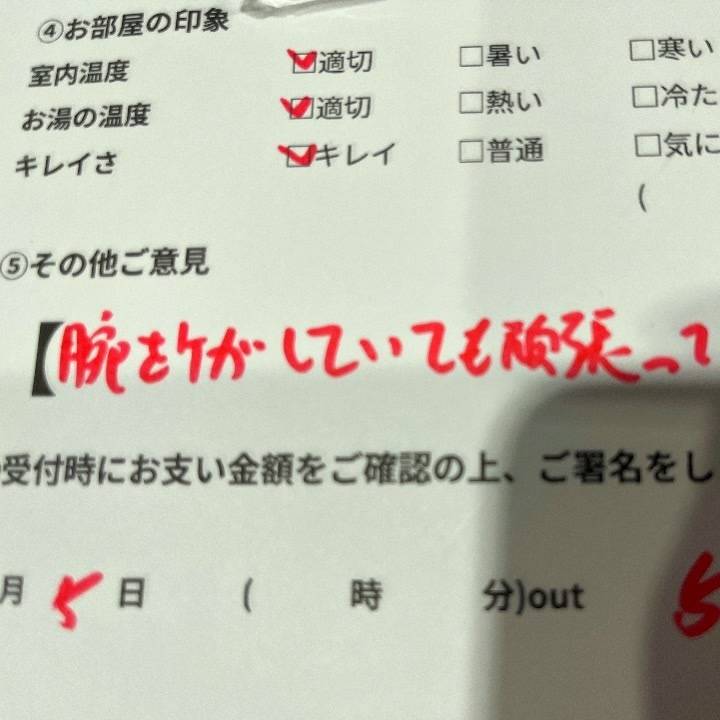 ④お部屋の印象
室内温度 ☑適切 □暑い □寒い
お湯の温度 ☑適切 □熱い □冷た
キレイさ ☑キレイ □普通 □気に
(
⑤その他ご意見
【腕をケガしていても頑張って
受付時にお支払い金額をご確認の上、ご署名をし
月 5 日 ( 時 分)out 5